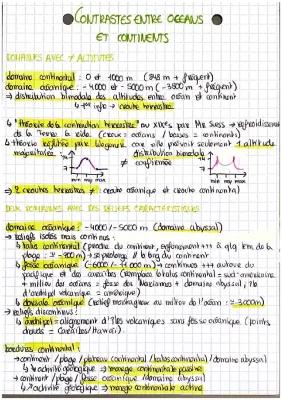 CONTRASTES ENTRE OCEANS
ET CONTINENTS
DOMAINES AVEC ≠ ALTITUDES
domaine continental : 0 et 1000 m (848 m + fréquent)
domaine océanique : -4000 et -5000 m (-3800 m + fréquent)
⇒ distribution bimodale des altitudes entre océan et continent
↳ 1er info → croute terrestre
↳ "théorie de la contraction terrestre" au XIXe par Mr Suess → refroidissement
de la Terre à vide. (creux : océans / bosses : continents)
↳ théorie réfutée par Wegener car elle prévoit seulement 1 altitude
majoritaire
≠
distribution bimodale
confirmée
min moy max
min moy max
⇒ 2 croutes terrestres ≠ : croute océanique et croute continentale
DEUX DOMAINES AVEC DES RELIEFS CARACTERISTIQUES
domaine océanique : -4000/-5000 m (domaine abyssal)
→ reliefs isolés mais continus :
↳ talus continental (proche du continent, +++ à qlq km de la
plage : ≈ m) → se prolonge // la long du continent
↳ fosse océanique (-6000/-11 000 m) → continus +++ autour du
pacifique et des caraïbes (remplace le talus continental = sud-américaine
+ milieu des océans = fosse des Mariannes + domaine abyssal, )
d'archipel volcanique = amérique)
↳ dorsale océanique (relief montagneux au milieu de l'océan : ≈ -3000m)
→ reliefs discontinus :
↳ archipel = alignement d'îles volcaniques sans fosse océanique (points
chauds = Caraïbes/Hawaii).
bordures continentales :
→ continent / plage / plateau continental / talus continental / domaine abyssal
↳ activité géologique ⇒ marge continentale passive
→ continent / plage / fosse océanique / domaine abyssal
↳ activité géologique ⇒ marge continentale active